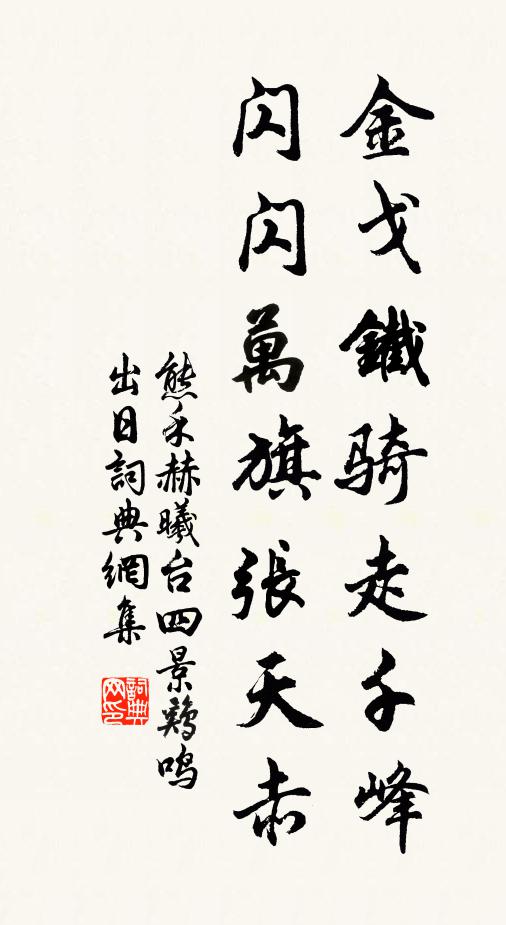 金戈鐵騎走千峰
閃閃萬旗張天赤
熊禾赫曦台四景鶏鸣
出日詞典網集
詞典网印